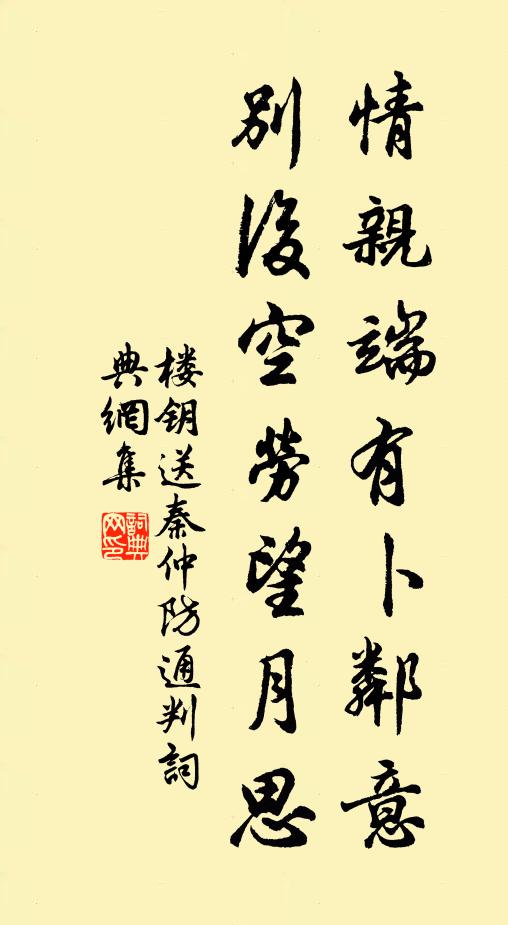 情親端有卜鄰意
別後空勞望月思
楼钥送秦仲防通判詞
典網集
詞典
网印